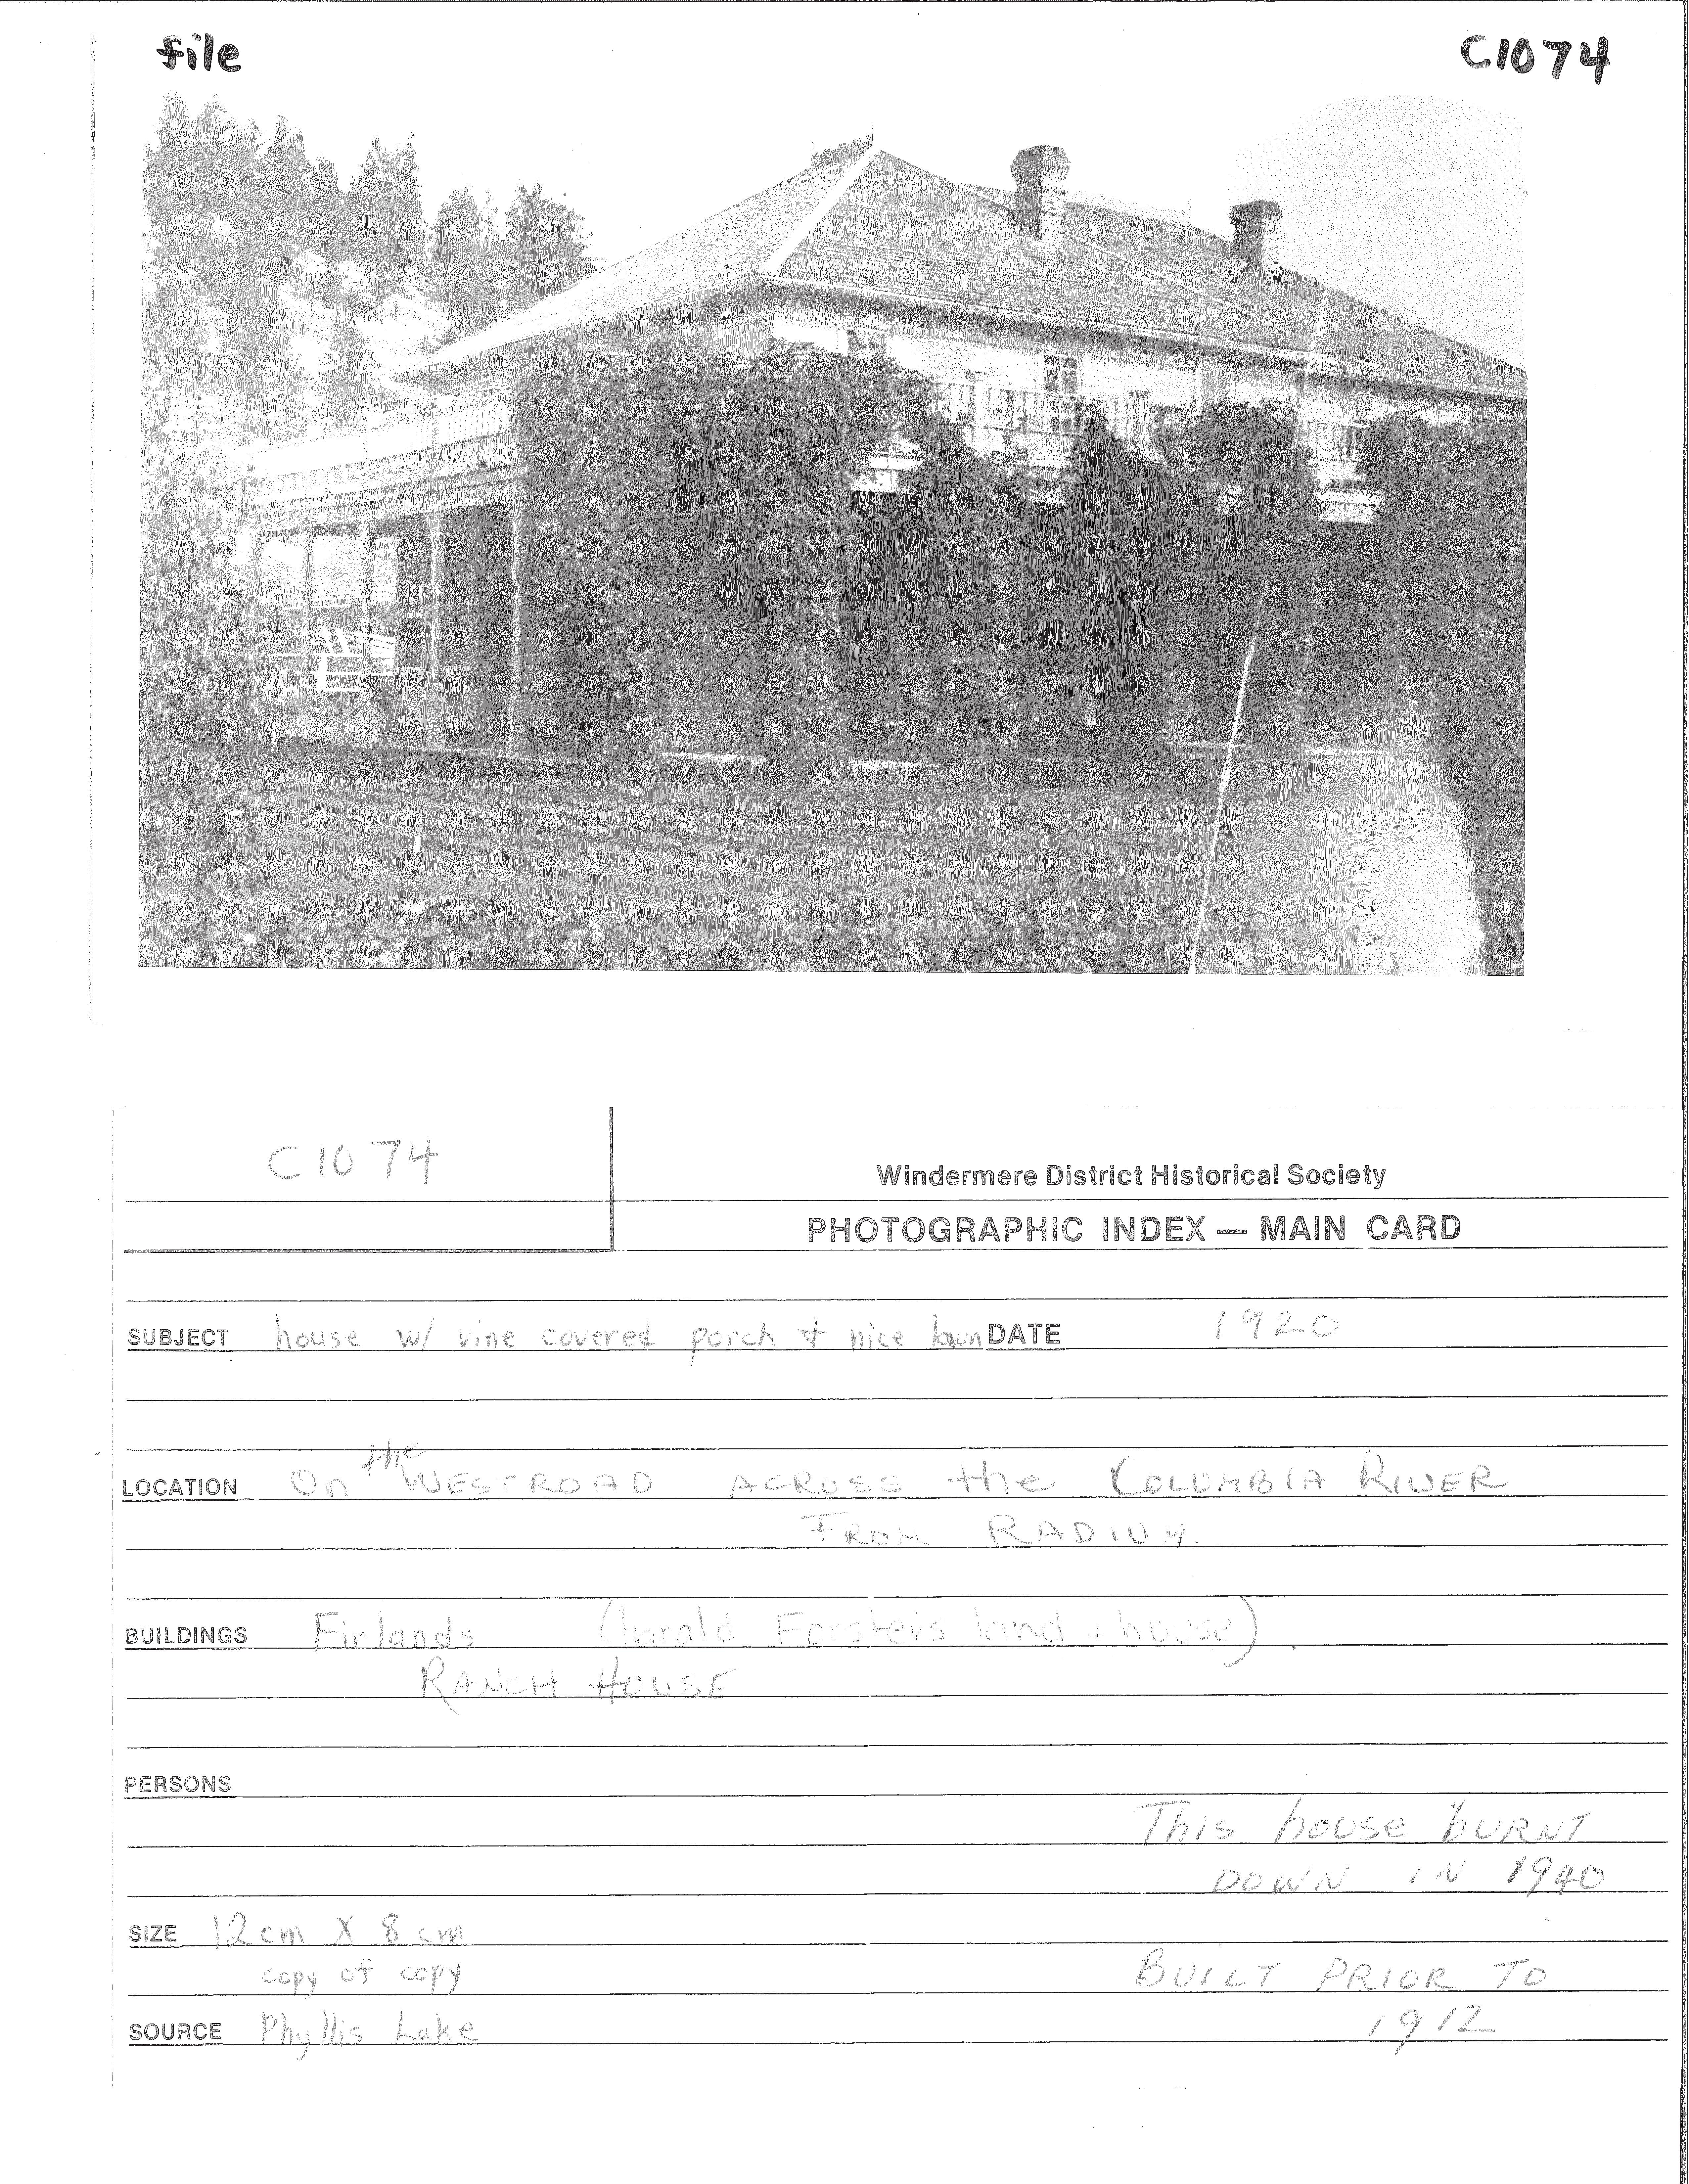 file
C1074
C1074
Windermere District Historical Society
PHOTOGRAPHIC INDEX — MAIN CARD
SUBJECT house w/ vine covered porch + nice lawn DATE 1920
LOCATION On the WESTROAD ACROSS the COLUMBIA RIVER
FROM RADIUM.
BUILDINGS Firlands (harald Forster's land + house)
RANCH HOUSE
PERSONS
This house BURNT
DOWN IN 1940
SIZE 12cm X 8cm
copy of copy
BUILT PRIOR TO
SOURCE Phyllis Lake
1912